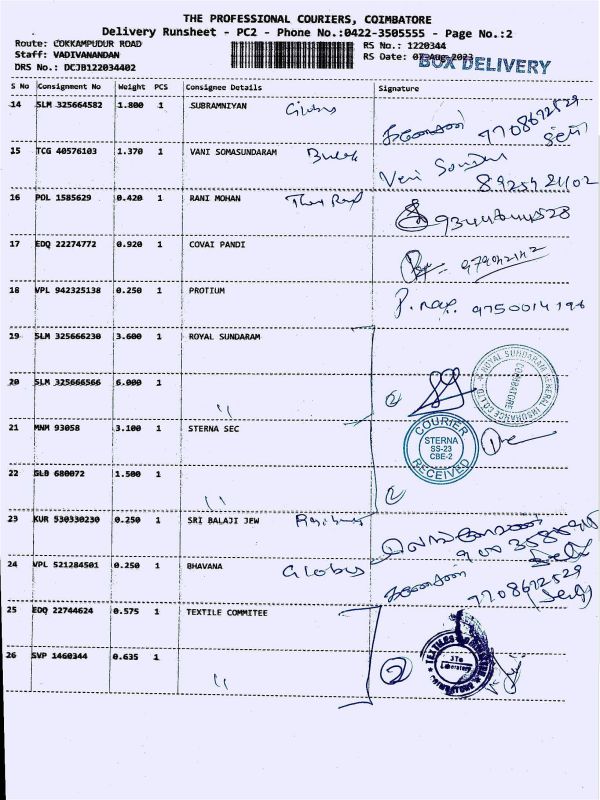 THE PROFESSIONAL COURIERS, COIMBATORE
Delivery Runsheet - PC2 - Phone No.:0422-3505555 - Page No.:2
Route: COKKAMPUDUR ROAD RS No.: 1220344
Staff: VADIVANANDAN RS Date: 07-Aug-2023
DRS No.: DCJB122034402 BOX DELIVERY
S No Consignment No Weight PCS Consignee Details Signature
14 SLM 325664582 1.800 1 SUBRAMNIYAN Globus
7708672529
15 TCG 40576103 1.370 1 VANI SOMASUNDARAM
Vani
16 POL 1585629 0.420 1 RANI MOHAN
17 EDQ 22274772 0.920 1 COVAI PANDI
18 VPL 942325138 0.250 1 PROTIUM
9750014196
19 SLM 325666230 3.600 1 ROYAL SUNDARAM
ROYAL SUNDARAM GENERAL INSURANCE CO.LTD.
COIMBATORE
20 SLM 325666566 6.000 1 "
21 MNM 93058 3.100 1 STERNA SEC
COURIER
STERNA
SS-23
CBE-2
RECEIVED
22 SLB 680072 1.500 1 "
23 KUR 530330230 0.250 1 SRI BALAJI JEW
24 VPL 521284501 0.250 1 BHAVANA Globus
7708672529
25 EDQ 22744624 0.575 1 TEXTILE COMMITEE
26 SVP 1460344 0.635 1 " 2
Laboratory
COIMBATORE